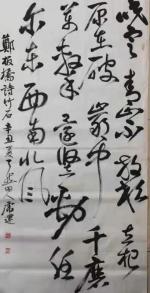 咬定青山不放松立根
原在破岩中千磨
萬擊還堅勁任
尔东西南北风
鄭板橋詩竹石辛丑夏